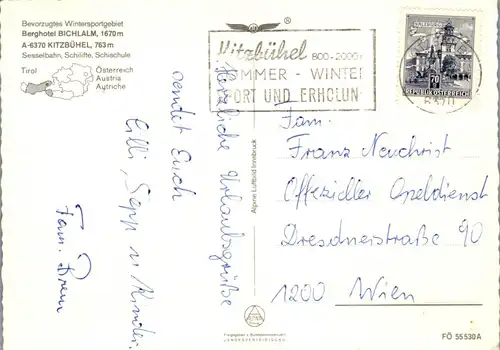 Bevorzugtes Wintersportgebiet
Berghotel BICHLALM, 1670 m
A-6370 KITZBÜHEL, 763 m
Sesselbahn, Schilifte, Schischule
Tirol
Österreich
Austria
Autriche
Kitzbühel 800-2000
SOMMER - WINTER
SPORT UND ERHOLUN
6370
SALZBURG
70
REPUBLIK ÖSTERREICH
Herzliche Urlaubsgrüße
sendet Euch
Lilli, Sepp u Kinder.
Fam.
Alpine Luftbild Innsbruck
Fam.
Franz Neuchrist
Offezidler Opeldienst
Dresdnerstraße 90
1200 Wien
FÖ 55530A